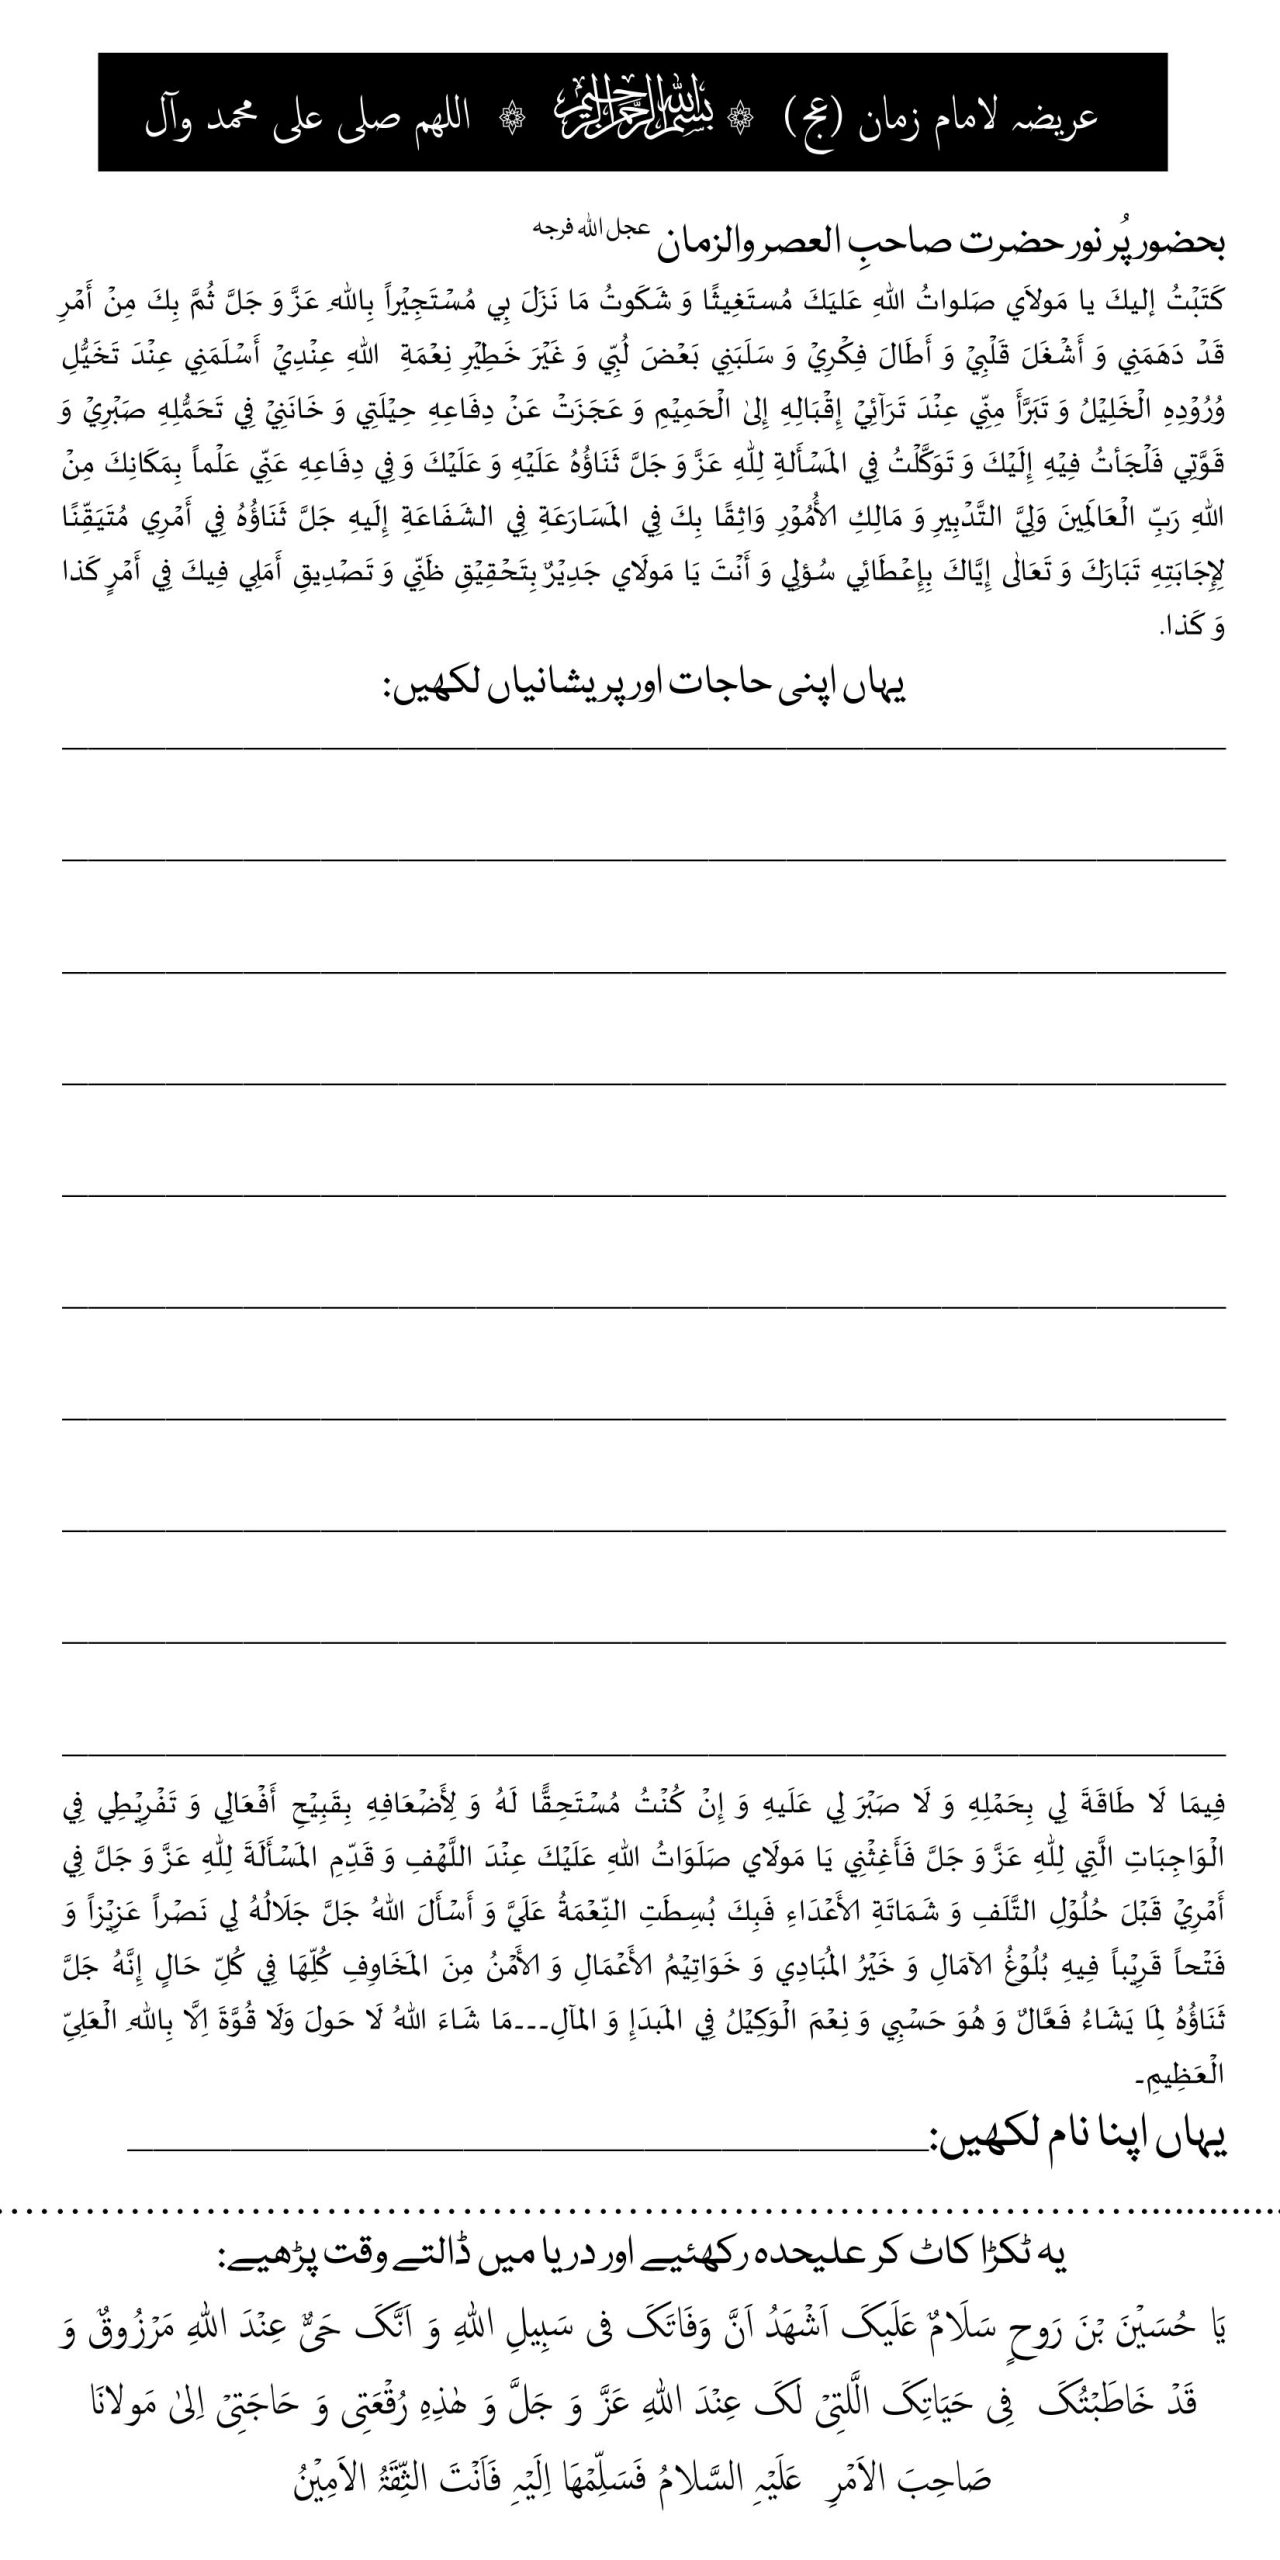 عریضہ لامام زمان (عج) ۞ ﷽ ۞ اللهم صلی علی محمد وآل
بحضور پُر نور حضرت صاحبِ العصر والزمان عجل الله فرجه
كَتَبْتُ إليكَ يا مَولاَي صَلواتُ اللهِ عَليَكَ مُستَغِيثًا وَ شَكَوتُ مَا نَزَلَ بِي مُسْتَجِيْراً بِاللهِ عَزَّ وَ جَلَّ ثُمَّ بِكَ مِنْ أَمْرِ
قَدْ دَهَمَنِي وَ أَشْغَلَ قَلْبِيْ وَ أَطَالَ فِكْرِيْ وَ سَلَبَنِي بَعْضَ لُبِّي وَ غَيْرَ خَطِيْرِ نِعْمَةِ اللهِ عِنْدِيْ أَسْلَمَنِي عِنْدَ تَخَيُّلِ
وُرُوْدِهِ الْخَلِيْلُ وَ تَبَرَّأَ مِنِّي عِنْدَ تَرَآئِيْ إِقْبَالِهِ إِلىٰ الْحَمِيْمِ وَ عَجَزَتْ عَنْ دِفَاعِهِ حِيْلَتِي وَ خَانَنِيْ فِي تَحَمُّلِهِ صَبْرِيْ وَ
قَوَّتِي فَلْجَأتُ فِيْهِ إِلَيْكَ وَ تَوَكَّلْتُ فِي المَسْأَلةِ لِلّٰهِ عَزَّ وَ جَلَّ ثَنَاؤُهُ عَلَيْهِ وَ عَلَيْكَ وَ فِي دِفَاعِهِ عَنِّي عَلْماً بِمَكَانِكَ مِنْ
اللهِ رَبِّ الْعَالَمِينَ وَلِيَّ التَّدْبِيرِ وَ مَالِكِ الأُمُوْرِ وَاثِقًا بِكَ فِي المَسَارَعَةِ فِي الشَفَاعَةِ إِلَيهِ جَلَّ ثَنَاؤُهُ فِي أَمْرِي مُتَيَقِّنًا
لِإِجَابَتِهِ تَبَارَكَ وَ تَعَالٰى إِيَّاكَ بِإِعْطَائِي سُؤلِي وَ أَنْتَ يَا مَولَاي جَدِيْرٌ بِتَحْقِيْقِ ظَنِّي وَ تَصْدِيقِ أَمَلِي فِيكَ فِي أَمْرٍ كَذا
وَ كَذا.
یہاں اپنی حاجات اور پریشانیاں لکھیں:
فِيمَا لَا طَاقَةَ لِي بِحَمْلِهِ وَ لَا صَبْرَ لِي عَلَيهِ وَ إِنْ كُنْتُ مُسْتَحِقًّا لَهُ وَ لِأَضْعَافِهِ بِقَبِيْحِ أَفْعَالِي وَ تَفْرِيْطِي فِي
الْوَاجِبَاتِ الَّتِي لِلّٰهِ عَزَّ وَ جَلَّ فَأَغِثْنِي يَا مَولَاي صَلَوَاتُ اللهِ عَلَيْكَ عِنْدَ اللَّهْفِ وَ قَدِّمِ المَسْأَلَةَ لِلّٰهِ عَزَّ وَ جَلَّ فِي
أَمْرِيْ قَبْلَ حُلُوْلِ التَّلَفِ وَ شَمَاتَةِ الأَعْدَاءِ فَبِكَ بُسِطَتِ النِّعْمَةُ عَلَيَّ وَ أَسْأَلَ اللهُ جَلَّ جَلَالُهُ لِي نَصْراً عَزِيْزاً وَ
فَتْحاً قَرِيْباً فِيهِ بُلُوْغُ الآمَالِ وَ خَيْرُ المُبَادِي وَ خَوَاتِيْمُ الأَعْمَالِ وَ الأَمْنُ مِنَ المَخَاوِفِ كُلِّهَا فِي كُلِّ حَالٍ إِنَّهُ جَلَّ
ثَنَاؤُهُ لِمَا يَشَاءُ فَعَّالٌ وَ هُوَ حَسْبِي وَ نِعْمَ الْوَكِيْلُ فِي المَبدَإِ وَ المآلِ۔۔۔مَا شَاءَ اللهُ لَا حَولَ وَلَا قُوَّةَ اِلَّا بِاللهِ الْعَلِيِّ
الْعَظِيمِ۔
یہاں اپنا نام لکھیں:
یہ ٹکڑا کاٹ کر علیحدہ رکھئیے اور دریا میں ڈالتے وقت پڑھیے:
یَا حُسَیْنَ بْنَ رَوحٍ سَلَامٌ عَلَیکَ اَشْهَدُ اَنَّ وَفَاتَکَ فی سَبِیلِ اللهِ وَ اَنَّکَ حَیٌّ عِنْدَ اللهِ مَرْزُوقٌ وَ
قَدْ خَاطَبْتُکَ فِی حَیَاتِکَ الَّلتِیْ لَکَ عِنْدَ اللهِ عَزَّ وَ جَلَّ وَ هٰذِهِ رُقْعَتِی وَ حَاجَتِیْ اِلیٰ مَولانَا
صَاحِبَ الاَمْرِ عَلَیْہِ السَّلامُ فَسَلِّمْهَا اِلَیْہِ فَاَنْتَ الثِّقَةُ الاَمِیْنُ